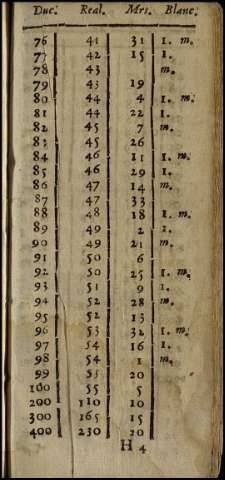 Duc. Real. Mrs. Blanc.
76 41 31 I. m.
77 42 15 I.
78 43 m.
79 43 19
80 44 4 I. m.
81 44 22 I.
82 45 7 m.
83 45 26
84 46 11 I. m.
85 46 29 I.
86 47 14 m.
87 47 33
88 48 18 I. m.
89 49 2 I.
90 49 21 m.
91 50 6
92 50 25 I. m.
93 51 9 I.
94 52 28 m.
95 52 13
96 53 32 I. m.
97 54 16 I.
98 54 1 m.
99 55 20
100 55 5
200 110 10
300 165 15
400 230 20
H 4